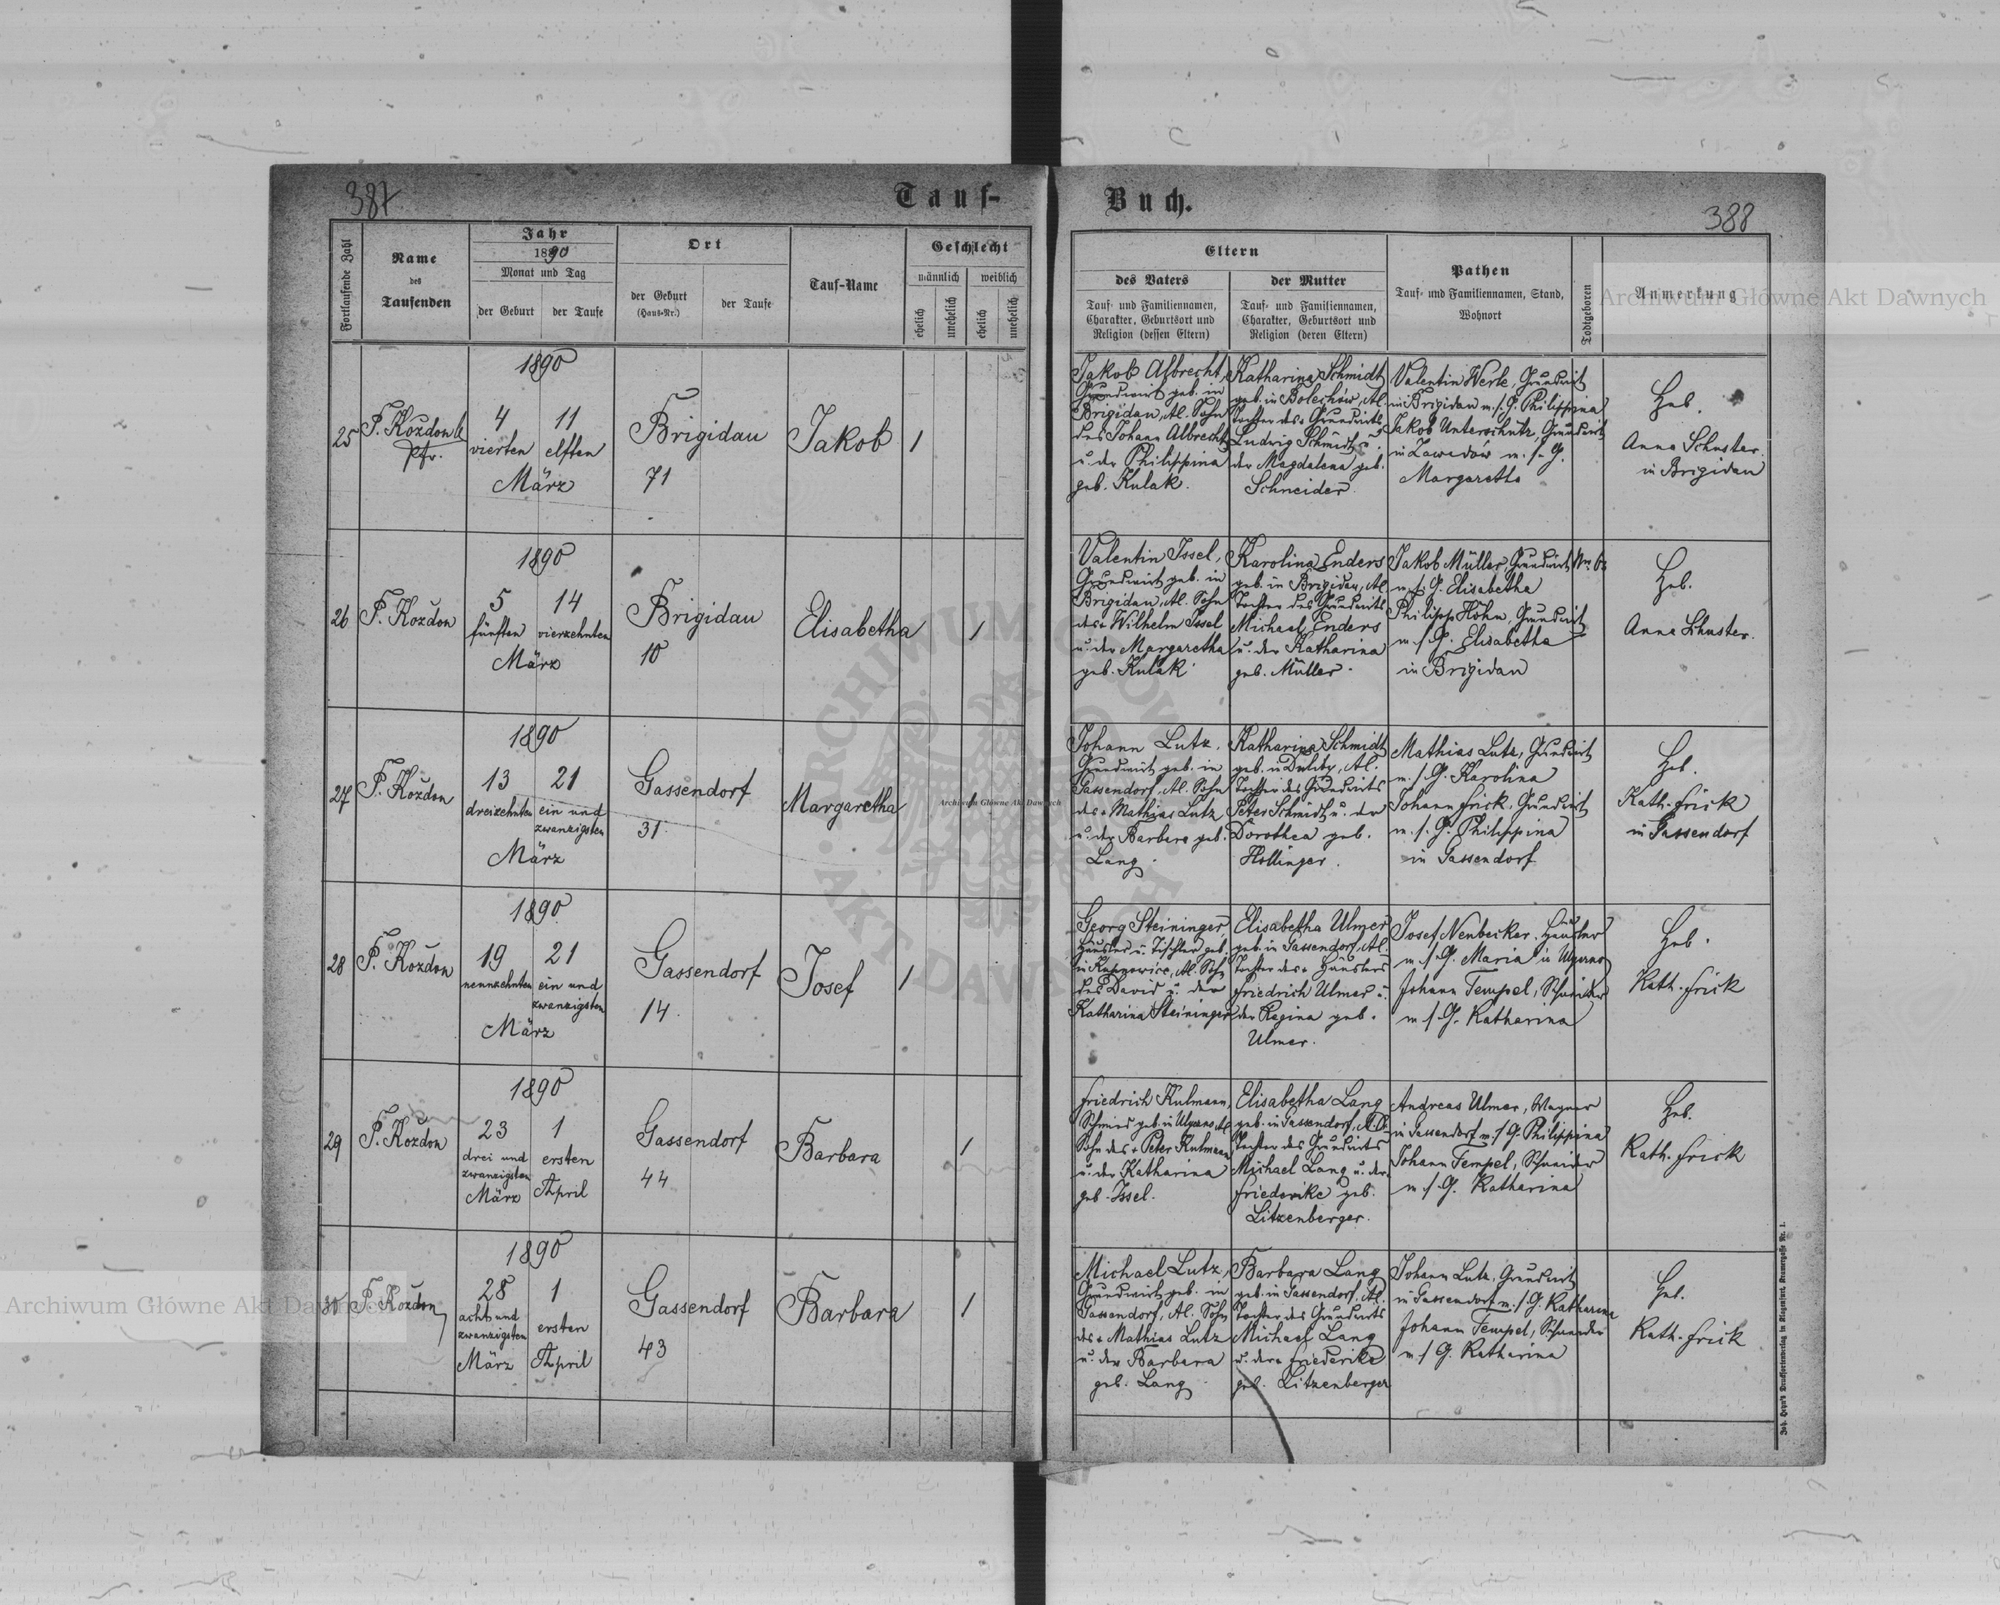 387
Tauf-
Fortlaufende Zahl
Name
des
Taufenden
Jahr
1890
Monat und Tag
der Geburt
der Taufe
Ort
der Geburt
(Haus-Nr.)
der Taufe
Tauf-Name
Geschlecht
männlich
weiblich
ehelich
unehelich
ehelich
unehelich
1890
25
P. Kozdon
Pfr.
4
11
vierten
elften
März
Brigidau
71
Jakob
1
1890
26
P. Kozdon
5
14
fünften
vierzehnten
März
Brigidau
10
Elisabetha
1
1890
27
P. Kozdon
13
21
dreizehnten
ein und
zwanzigsten
März
Gassendorf
31
Margaretha
1
1890
28
P. Kozdon
19
21
neunzehnten
ein und
zwanzigsten
März
Gassendorf
14
Josef
1
1890
29
P. Kozdon
23
1
drei und
zwanzigsten
ersten
März
April
Gassendorf
44
Barbara
1
1890
30
P. Kozdon
28
1
acht und
zwanzigsten
ersten
März
April
Gassendorf
43
Barbara
1
Buch.
388
Eltern
des Vaters
Tauf- und Familiennamen,
Charakter, Geburtsort und
Religion (dessen Eltern)
der Mutter
Tauf- und Familiennamen,
Charakter, Geburtsort und
Religion (deren Eltern)
Pathen
Tauf- und Familiennamen, Stand,
Wohnort
Todtgeboren
Anmerkung
Jakob Albrecht,
Grundwirt geb. in
Brigidau, Al. Sohn
des Johann Albrecht
u. der Philippina
geb. Kulak.
Katharina Schmidt
geb. in Bolechów, Al.
Tochter des Grundwirts
Ludwig Schmidt u.
der Magdalena geb.
Schneider.
Valentin Werle, Grundwirt
in Brigidau m. s. G. Philippina
Jakob Unterschütz, Grundwirt
in Zawadow m. s. G.
Margaretha
Heb.
Anna Schuster.
in Brigidau
Valentin Issel,
Grundwirt geb. in
Brigidau, Al. Sohn
des + Wilhelm Issel
u. der Margaretha
geb. Kulak
Karolina Enders
geb. in Brigidau, Al.
Tochter des Grundwirts
Michael Enders
u. der Katharina
geb. Müller.
Jakob Müller, Grundwirt
m. s. G. Elisabetha
Philipp Höhn, Grundwirt
m. s. G. Elisabetha
in Brigidau
Heb.
Anna Schuster.
Johann Lutz,
Grundwirt geb. in
Gassendorf, Al. Sohn
des + Mathias Lutz
u. der Barbara geb.
Lang.
Katharina Schmidt
geb. in Duliby, Al.
Tochter des Grundwirts
Peter Schmidt u. der
Dorothea geb.
Hollinger.
Mathias Lutz, Grundwirt
m. s. G. Karolina
Johann Frick, Grundwirt
m. s. G. Philippina
in Gassendorf
Heb.
Kath. Frick
in Gassendorf
Georg Steininger
Häusler u. Tischler geb.
Al. Sohn
des David u. der
Katharina Steininger
Elisabetha Ulmer
geb. in Gassendorf, Al.
Tochter des + Häuslers
Friedrich Ulmer u.
der Regina geb.
Ulmer.
Josef Neubecker, Häusler
m. s. G. Maria in Ugersno
Johann Tempel, Schneider
m. s. G. Katharina
Heb.
Kath. Frick
Friedrich Kulmann,
Schmied geb. in Ugersno, Al.
Sohn des + Peter Kulmann
u. der Katharina
geb. Issel.
Elisabetha Lang
geb. in Gassendorf, Al.
Tochter des Grundwirts
Michael Lang u. der
Friederike geb.
Litzenberger.
Andreas Ulmer, Wagner
in Gassendorf m. s. G. Philippina
Johann Tempel, Schneider
m. s. G. Katharina
Heb.
Kath. Frick
Michael Lutz,
Grundwirt geb. in
Gassendorf, Al. Sohn
des + Mathias Lutz
u. der Barbara
geb. Lang
Barbara Lang
geb. in Gassendorf, Al.
Tochter des Grundwirts
Michael Lang
u. der Friederike
geb. Litzenberger
Johann Lutz, Grundwirt
in Gassendorf m. s. G. Katharina
Johann Tempel, Schneider
m. s. G. Katharina
Heb.
Kath. Frick
Archiwum Główne Akt Dawnych
Archiwum Główne Akt Dawnych
Archiwum Główne Akt Dawnych
ARCHIWUM GŁÓWNE AKT DAWNYCH